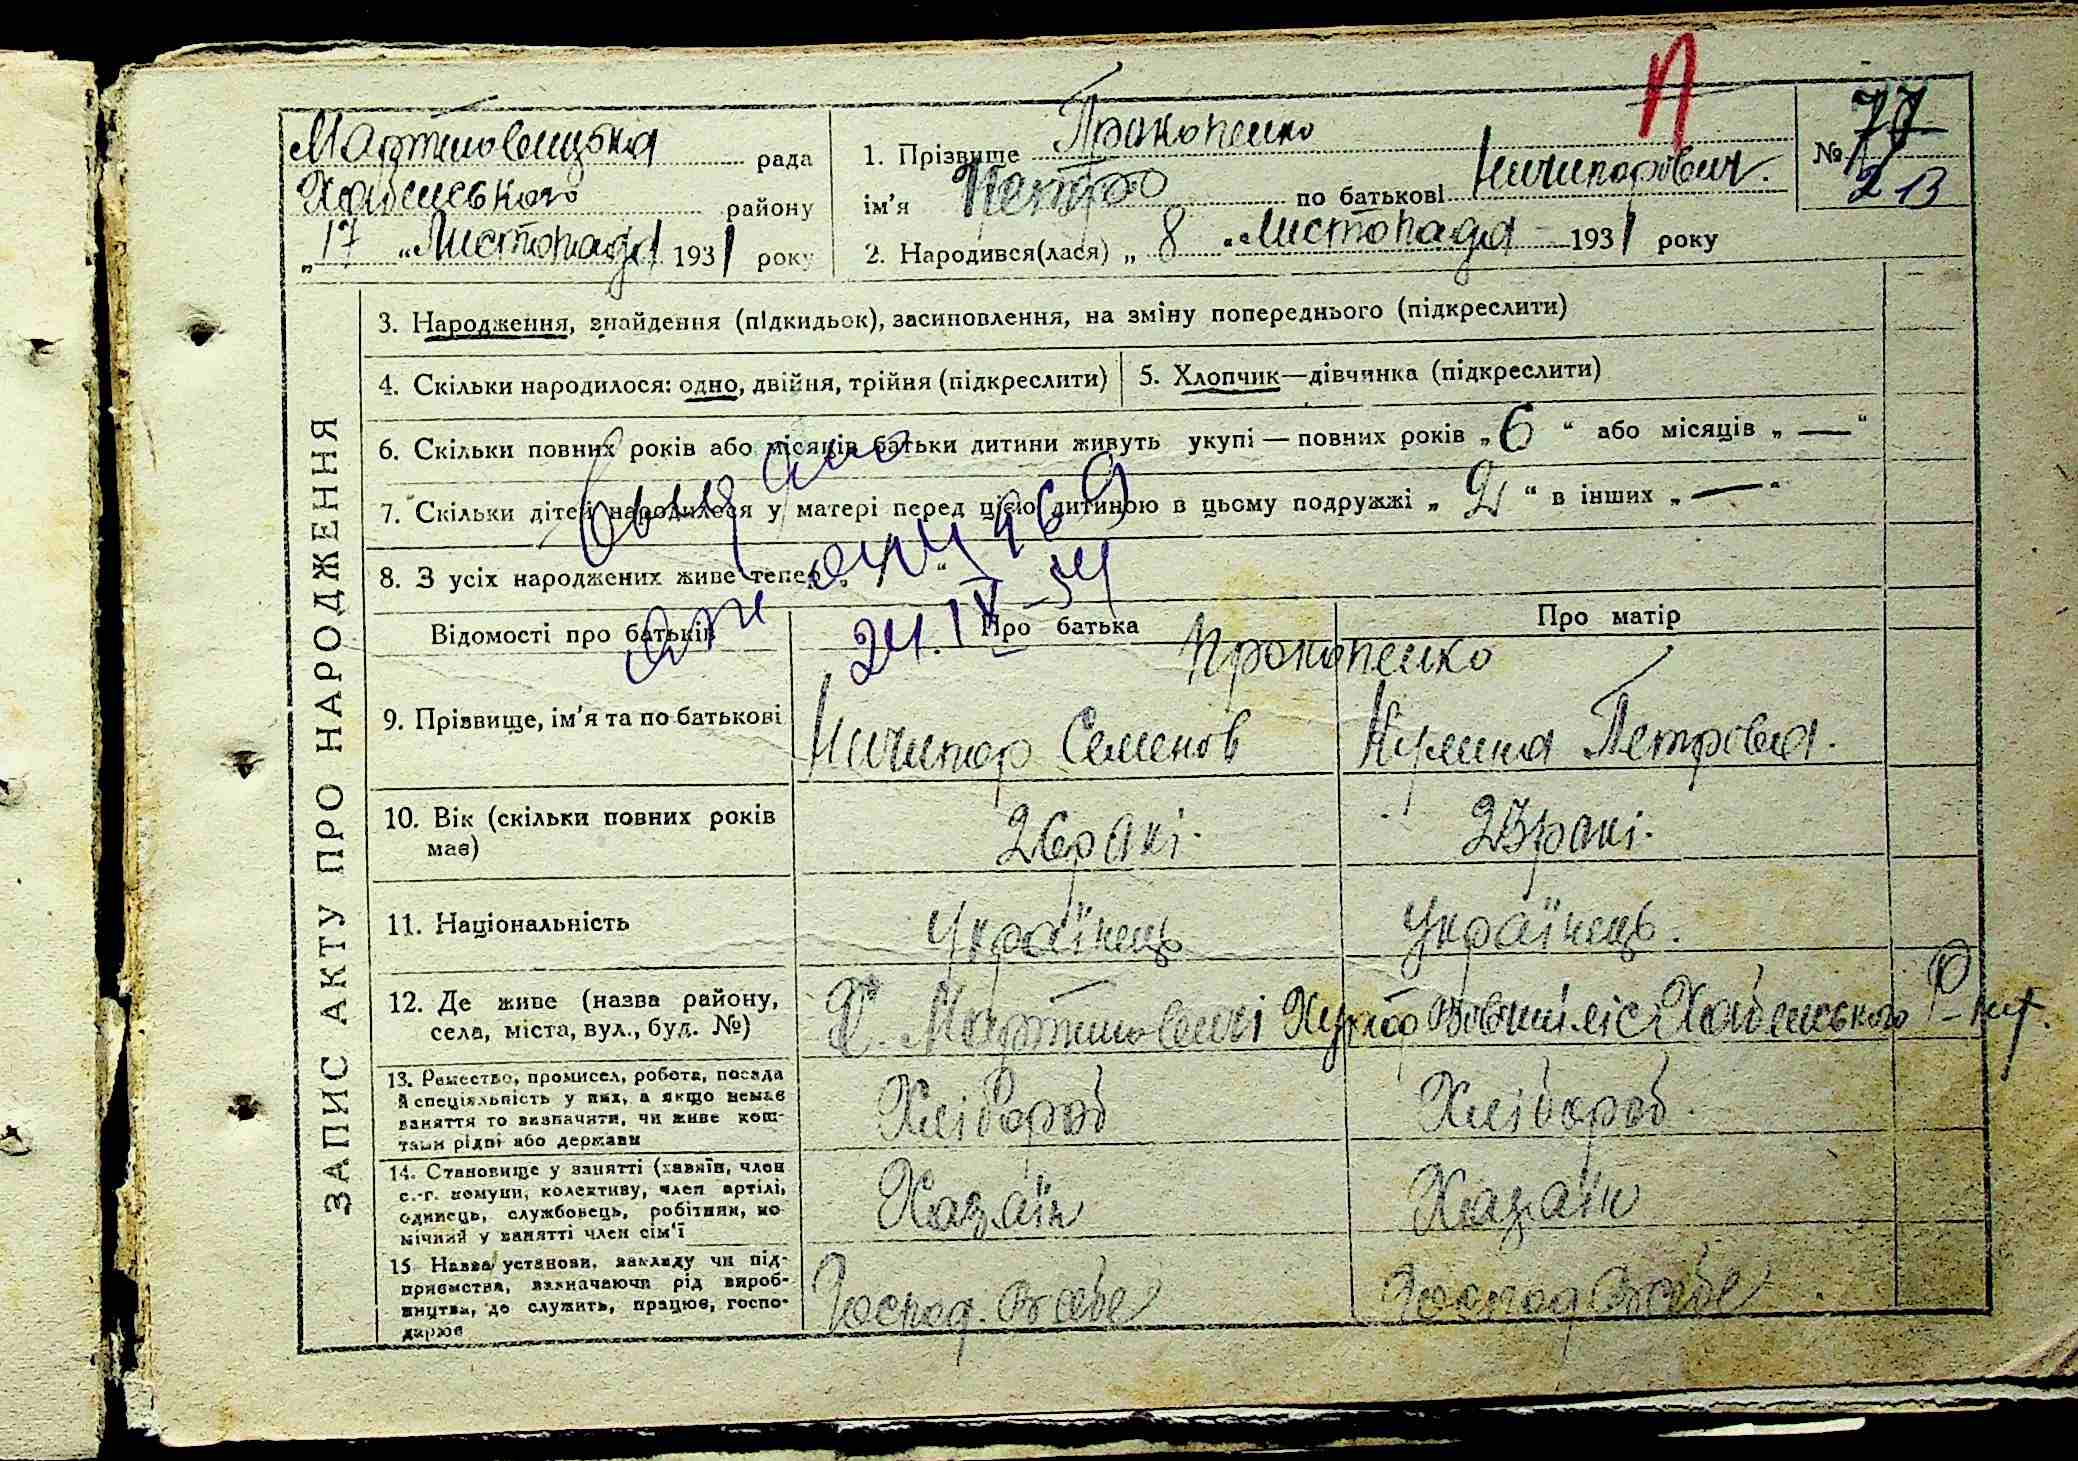 П
Мартиновицька рада
Хабенського району
„17 “ Листопада 1931 року
1. Прізвище Прокопенко
ім'я Петро по батькові Ничипорович.
2. Народився(лася) „ 8 „ Листопада 1931 року
№ 77
213
ЗАПИС АКТУ ПРО НАРОДЖЕННЯ
3. Народження, знайдення (підкидьок), засиновлення, на зміну попереднього (підкреслити)
4. Скільки народилося: одно, двійня, трійня (підкреслити)
5. Хлопчик—дівчинка (підкреслити)
6. Скільки повних років або місяців батьки дитини живуть укупі — повних років „ 6 “ або місяців „ — “
7. Скільки дітей народилося у матері перед цією дитиною в цьому подружжі „ 2 “ в інших „ — “
8. З усіх народжених живе тепер „ 1 “
24.IV-54
Відомості про батьків
Про батька
Про матір
Прокопенко
9. Прізвище, ім'я та по батькові
Ничипор Семенов
Кулина Петровна.
10. Вік (скільки повних років
має)
26 рокі.
23 рокі.
11. Національність
Українець
Українець.
12. Де живе (назва району,
села, міста, вул., буд. №)
С. Мартиновичі Хутор Вовчий ліс Хабенського Р-ну.
13. Ремество, промисел, робота, посада
й спеціяльність у них, а якщо немає
заняття то визначити, чи живе кош-
тами рідні або держави
Хлібороб
Хлібороб.
14. Становище у занятті (хазяїн, член
с.-г. комуни, колективу, член артілі,
одинець, службовець, робітник, по-
мічний у занятті член сім'ї
Хазяїн
Хазяїн
15 Назва установи, закладу чи під-
приємства, зазначаючи рід вироб-
ництва, де служить, працює, госпо-
дарює
Господ. В себе
Господ В себе